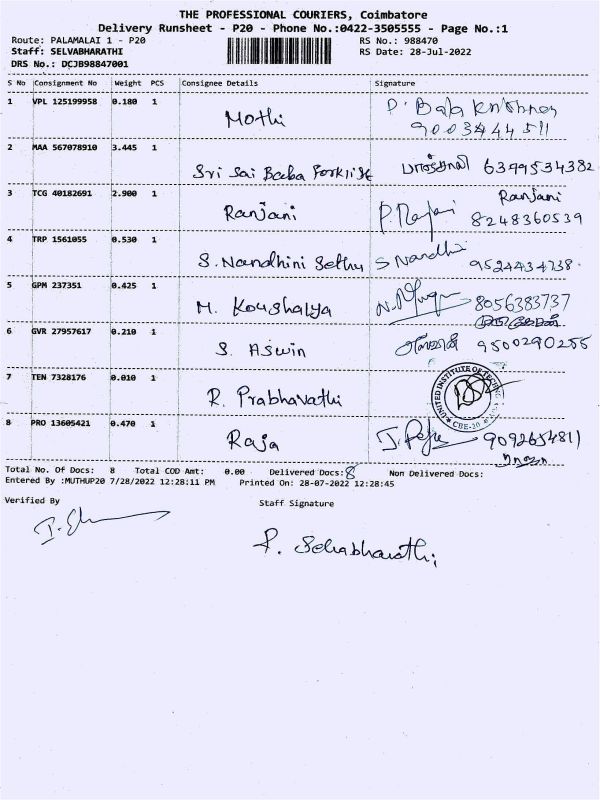 THE PROFESSIONAL COURIERS, Coimbatore
Delivery Runsheet - P20 - Phone No.:0422-3505555 - Page No.:1
Route: PALAMALAI 1 - P20 RS No.: 988470
Staff: SELVABHARATHI RS Date: 28-Jul-2022
DRS No.: DCJB98847001
S No Consignment No Weight PCS Consignee Details Signature
1 VPL 125199958 0.180 1 Mothi P. Bala Krishnan
9003444511
2 MAA 567078910 3.445 1 Sri Sai Baba Forklift 6399534382
3 TCG 40182691 2.900 1 Ranjani Ranjani
8248360539
4 TRP 1561055 0.530 1 S. Nandhini Sethu S Nandhi 9524434738
5 GPM 237351 0.425 1 M. Koushalya 8056383737
6 GVR 27957617 0.210 1 S. Aswin 9500290255
7 TEN 7328176 0.010 1 R. Prabhavathi UNITED INSTITUTE OF TECHNO CBE-20
8 PRO 13605421 0.470 1 Raja J. Raja 9092654811
ராஜா
Total No. Of Docs: 8 Total COD Amt: 0.00 Delivered Docs: 8 Non Delivered Docs:
Entered By :MUTHUP20 7/28/2022 12:28:11 PM Printed On: 28-07-2022 12:28:45
Verified By Staff Signature
P. Selvabharathi